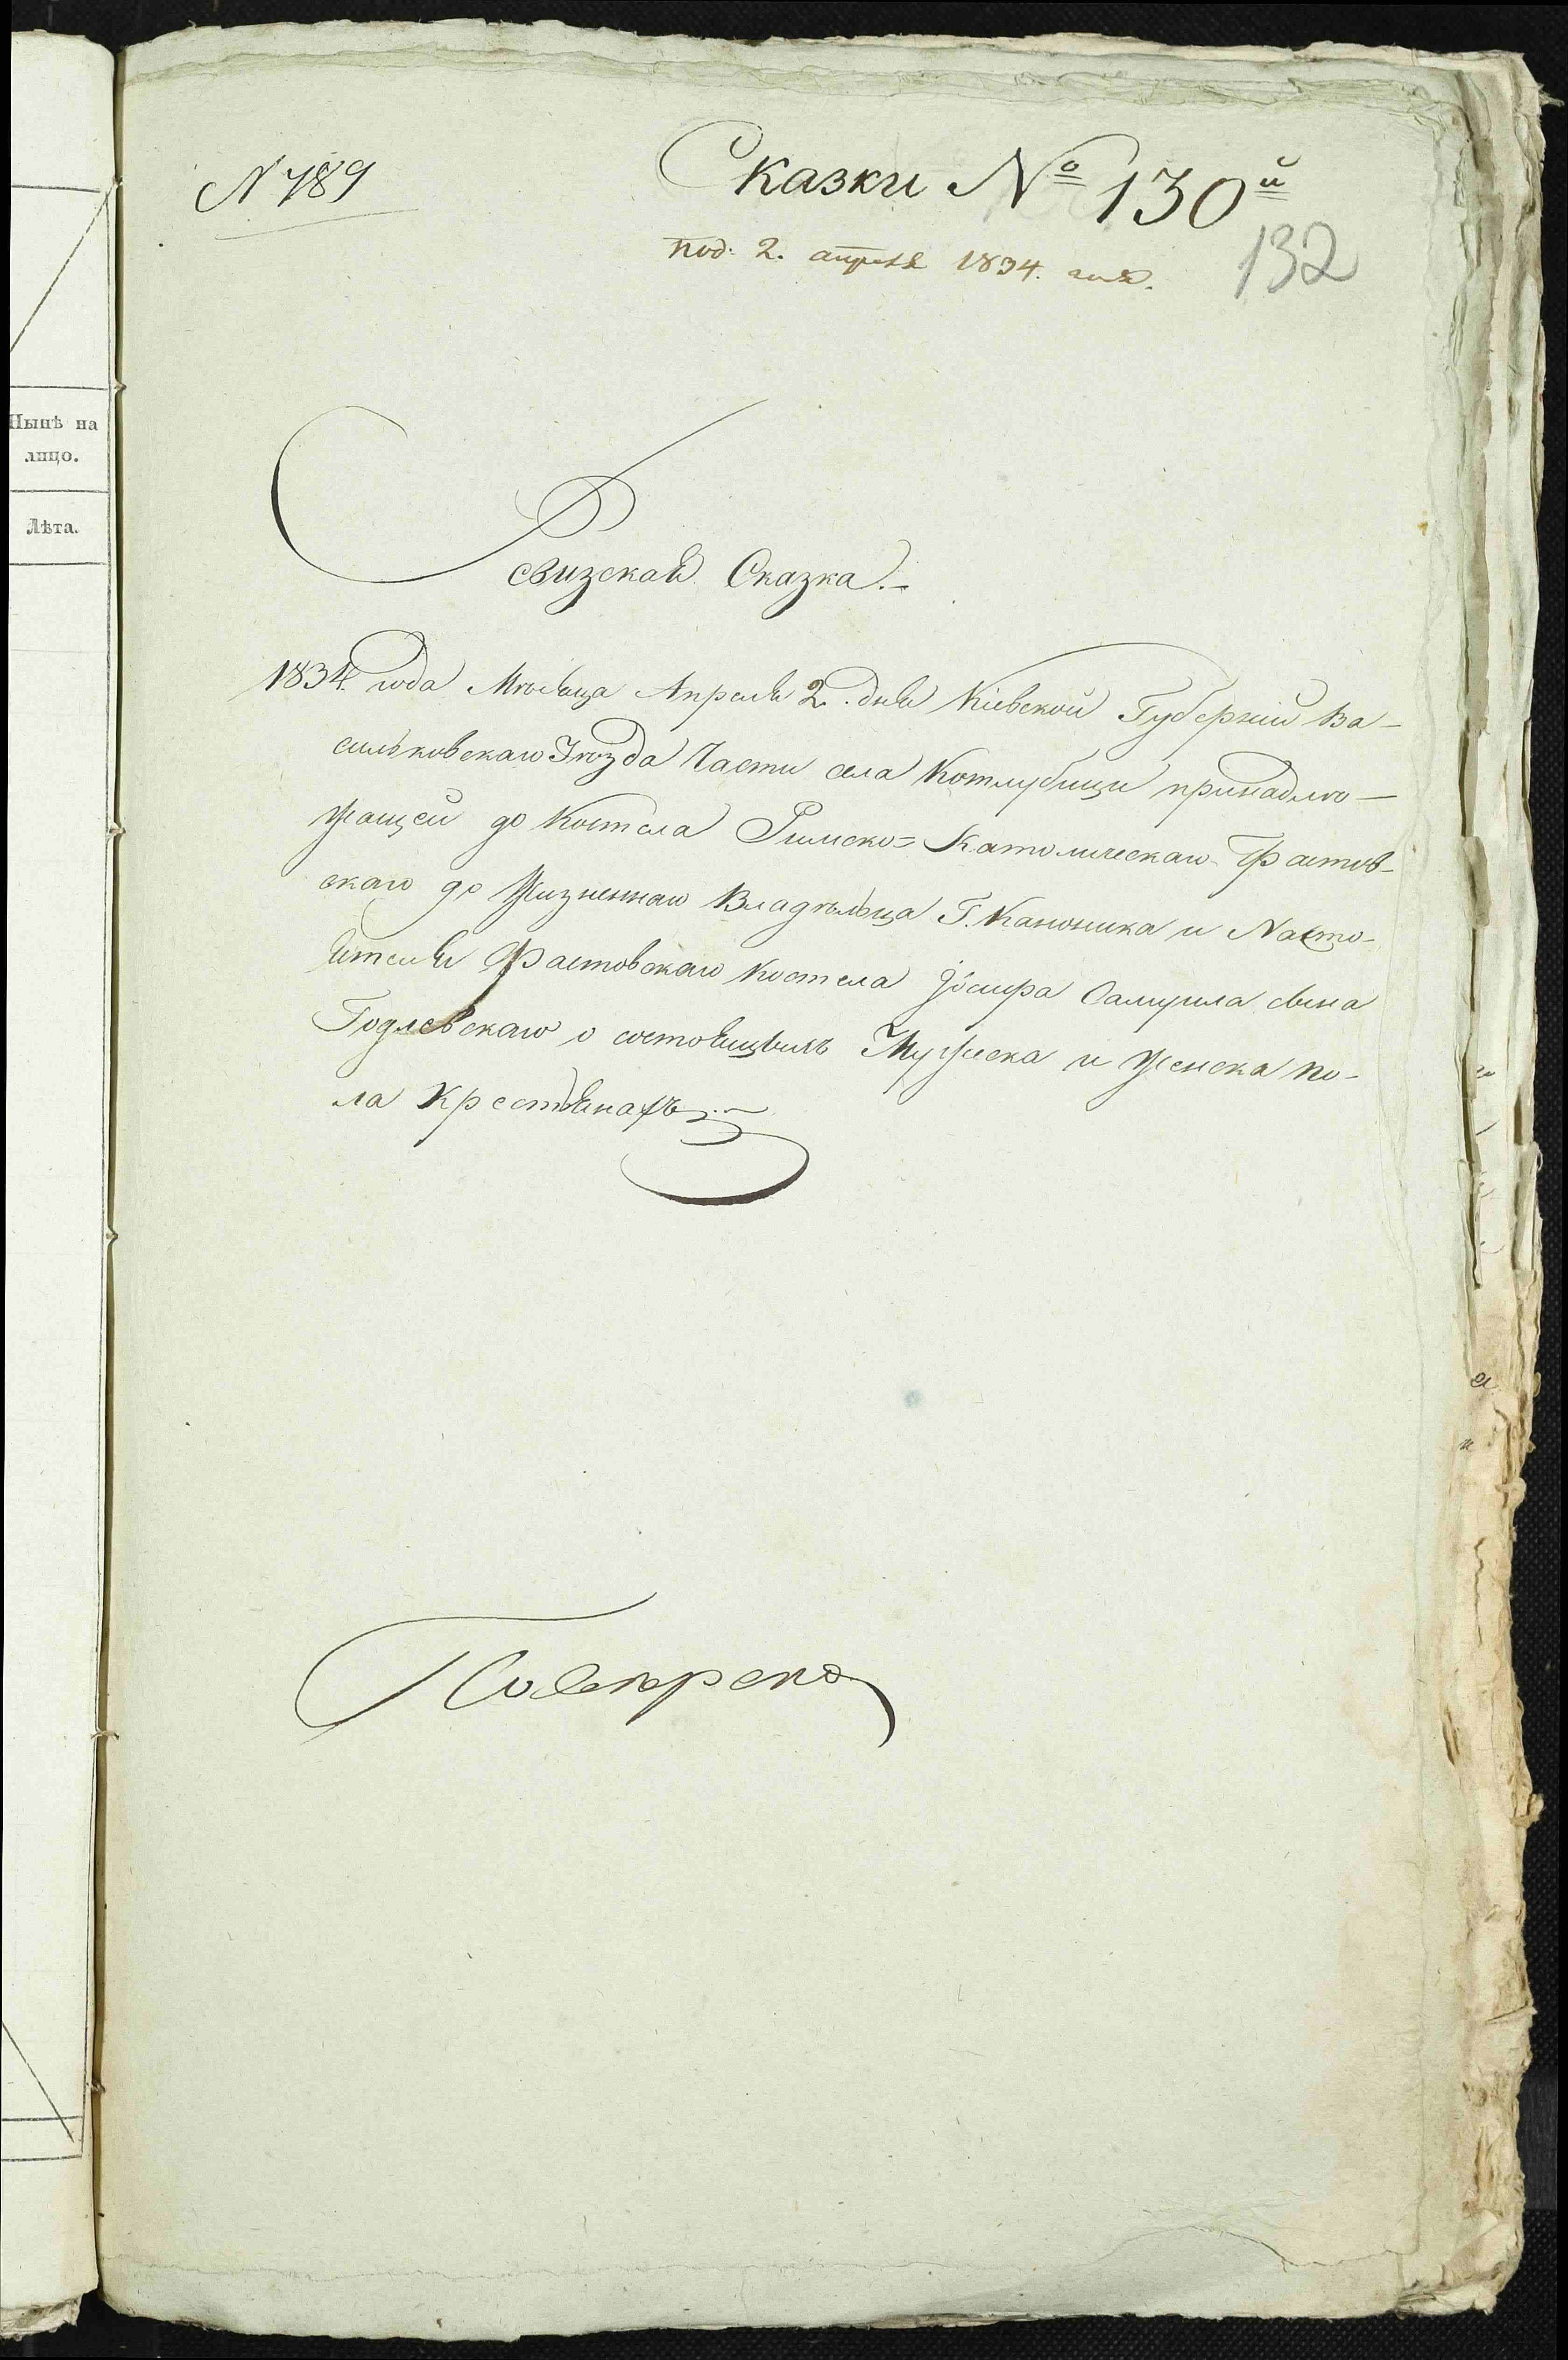 N 789
Сказки № 130й
под: 2. апреля 1834. года.
132
Нынѣ на
лицо.
Лѣта.
Ревизская Сказка.
1834 года Мѣсяца Апреля 2. дня Кіевской Губерніи Ва-
сильковскаго Уѣзда Части села Котлубици принадлѣ-
жащей до Костела Римско=Католическаго Фастов-
скаго до Жизненнаго Владѣльца Г. Каноника и Насто-
ятеля Фастовскаго Костела Іосифа Самуила сына
Годлевскаго о состоящихъ Мужеска и Женска по-
ла Крестянахъ
Повѣрено